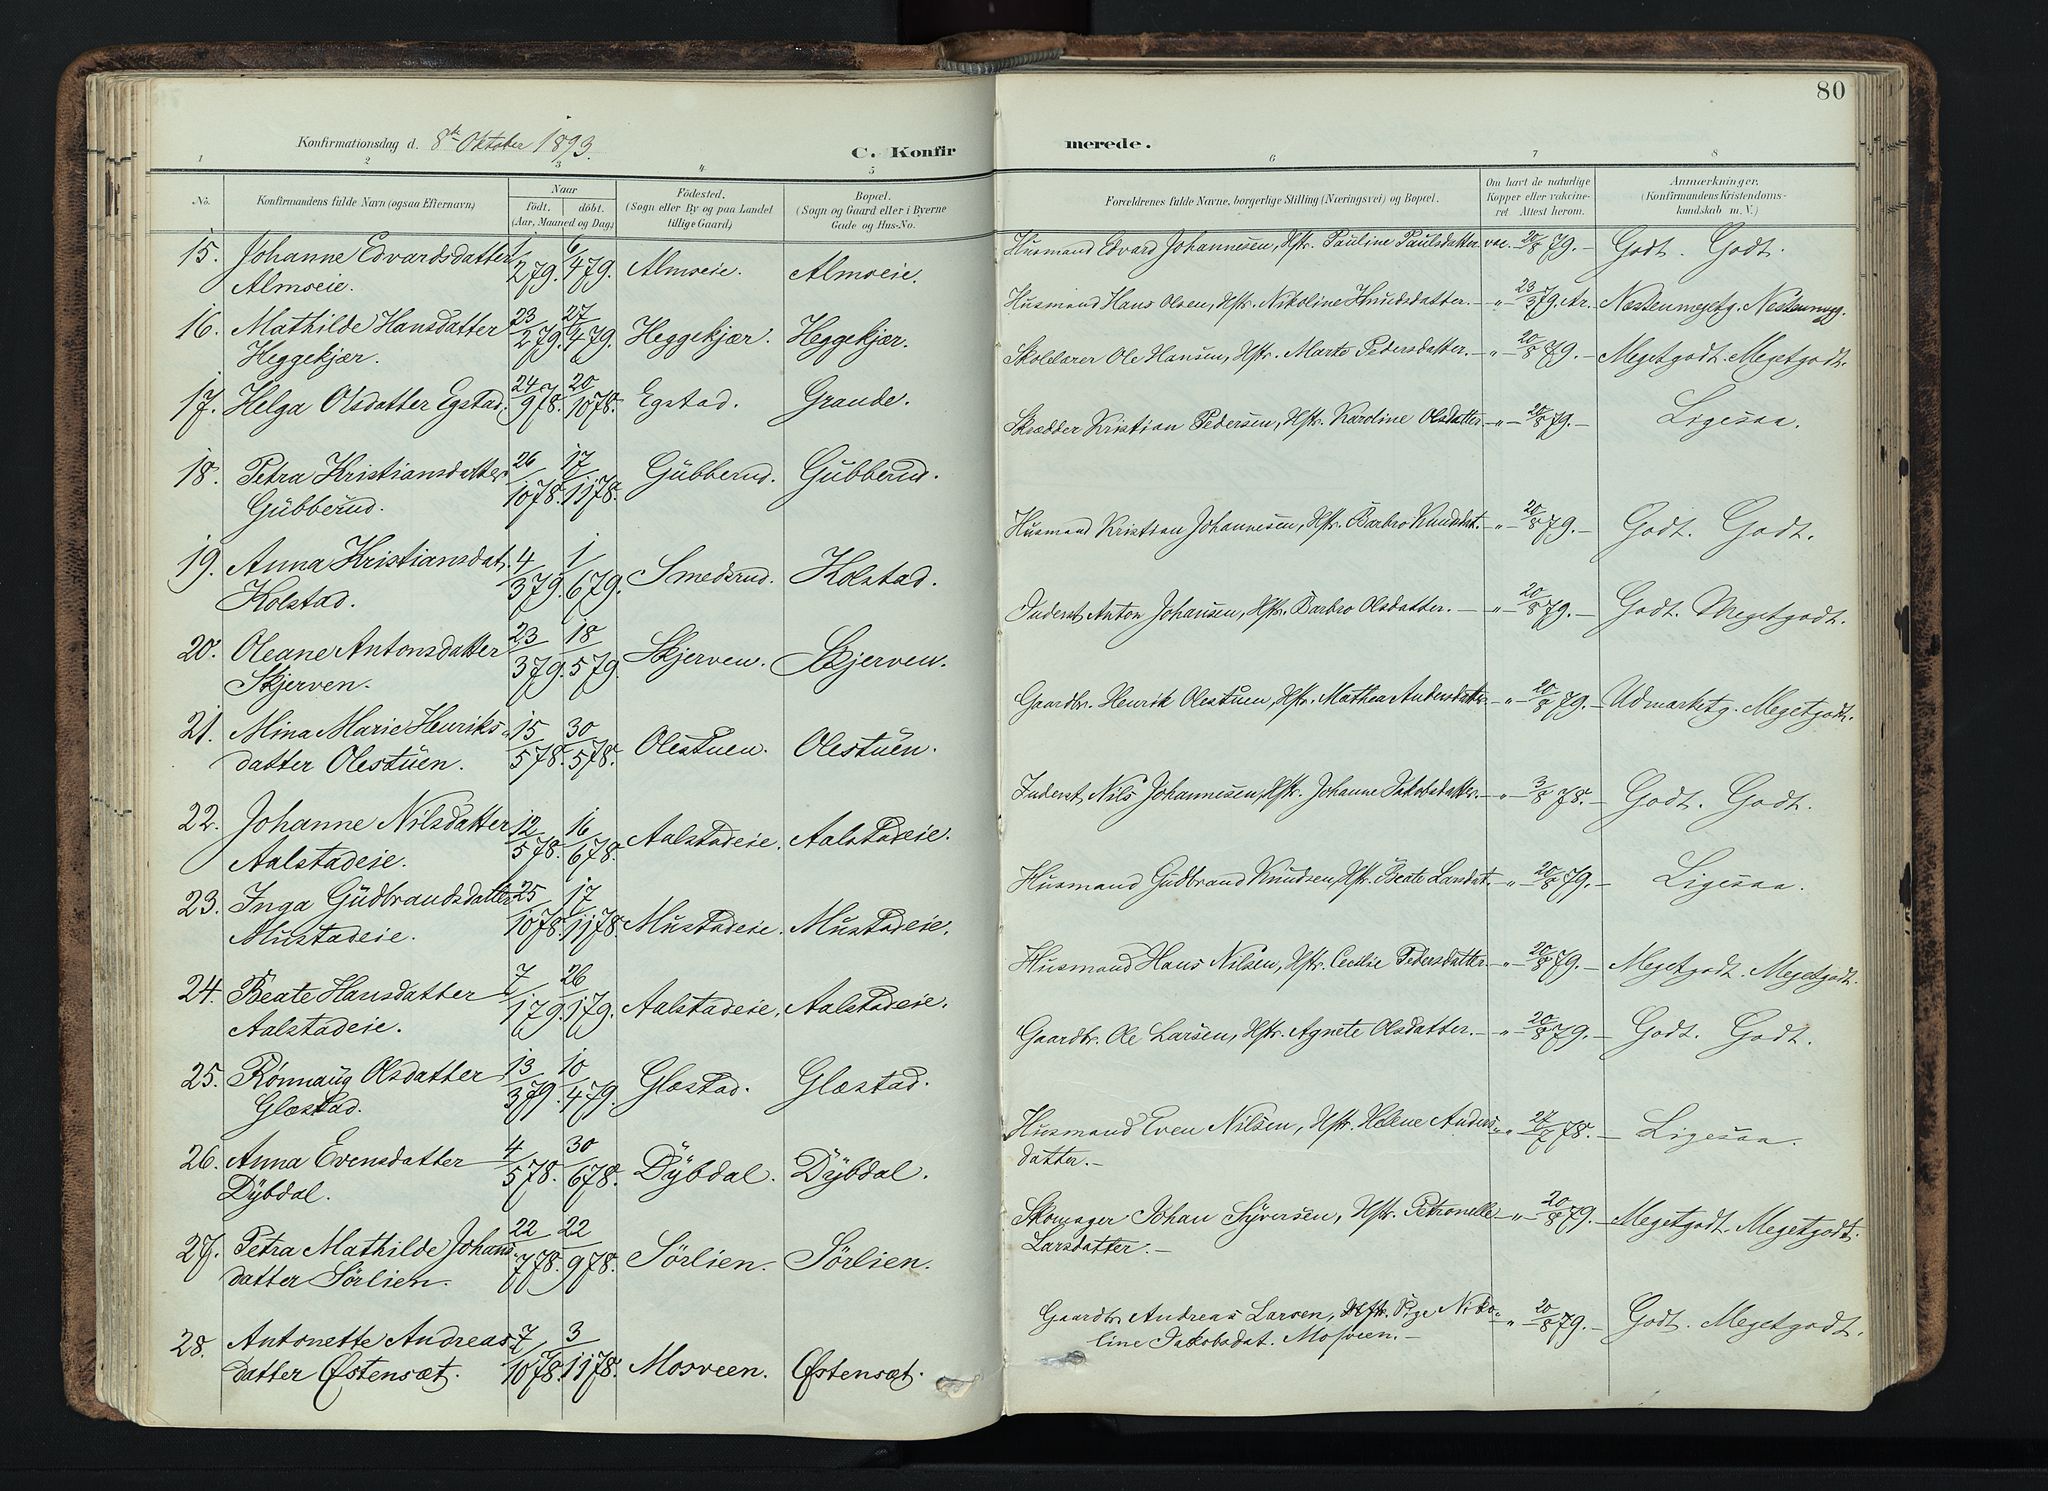 80
Konfirmationsdag d. 8de Oktober 1893.
C. Konfirmerede.
1 2 3 4 5 6 7 8
No. Konfirmandens fulde Navn (ogsaa Efternavn.) Naar født. døbt. (Aar, Maaned og Dag.) Födested. (Sogn eller By og paa Landet tillige Gaard.) Bopæl. (Sogn og Gaard eller i Byerne Gade og Hus-No. Forældrenes fulde Navne, borgerlige Stilling (Næringsvei) og Bopæl. Om havt de naturlige Kopper eller vaccineret Attest herom. Anmærkninger. (Konfirmandens Kristendomskundskab m. V.)
15. Johanne Edvardsdatter 1/2 79. 6/4 79. Almseie. Almseie. Husmand Edvard Johannesen, Hstr. Pauline Paulsdatter. vac. 20/8 79. Godt. Godt.
Almseie.
16. Mathilde Hansdatter 23/2 79. 27/4 79. Heggekjær. Heggekjær. Husmand Hans Olsen, Hstr. Nikoline Knudsdatter. – „ – 23/3 79. Ar. Næstenmegetg. Næstenmeg.
Heggekjær.
17. Helga Olsdatter Egstad. 24/9 78. 20/10 78. Egstad. Grande. Skolelærer Ole Hansen, Hstr. Marte Pedersdatter. – „ – 20/8 79. – Megetgodt. Megetgodt.
18. Petra Kristiansdatter 26/10 78. 17/11 78. Gubberud. Gubberud. Skrædder Kristian Pedersen, Hstr. Karoline Olsdatter – „ – 20/8 79. – Ligesaa.
Gubberud.
19. Anna Kristiansdat. 4/3 79. 1/6 79. Smedsrud. Kolstad. Husmand Kristian Johannesen, Hstr. Barbro Knudsdat. – „ – 20/8 79. – Godt. Godt.
Kolstad.
20. Oleane Antonsdatter 23/3 79. 18/5 79. Skjerven. Skjerven. Inderst Anton Johansen, Hstr. Barbro Olsdatter. – „ – 20/8 79. – Godt. Megetgodt.
Skjerven.
21. Mina Marie Henriks- 15/5 78. 30/5 78. Olestuen. Olestuen. Gaardbr. Henrik Olestuen, Hstr. Mathea Andersdatter – „ – 20/8 79. – Udmarketg. Megetgodt.
datter Olestuen.
22. Johanne Nilsdatter 12/5 78. 16/6 78. Aalstadeie. Aalstadeie. Inderst Nils Johannesen, Hstr. Johanne Jakobsdatter. – „ – 3/8 78. – Godt. Godt.
Aalstadeie.
23. Inga Gudbrandsdatter 25/10 78. 17/11 78. Mustadeie. Mustadeie. Husmand Gudbrand Knudsen, Hstr. Beate Larsdat. – „ – 20/8 79. – Ligesaa.
Mustadeie.
24. Beate Hansdatter 7/1 79. 26/1 79. Aalstadeie. Aalstadeie. Husmand Hans Nilsen, Hstr. Cecilie Pedersdatter – „ – 20/8 79. – Megetgodt. Megetgodt.
Aalstadeie.
25. Rønnaug Olsdatter 13/3 79. 10/4 79. Glæstad. Glæstad. Gaardbr. Ole Larsen, Hstr. Agnete Olsdatter. „ – 20/8 79. – Godt. Godt.
Glæstad.
26. Anna Evensdatter 4/5 78. 30/6 78. Dybdal. Dybdal. Husmand Even Nilsen, Hstr. Helene Anders- „ 27/7 78. – Ligesaa.
Dybdal. datter. –
27. Petra Mathilde Johans- 22/7 78. 22/9 78. Sørlien. Sørlien. Skomager Johan Syversen, Hstr. Petronelle – „ – 20/8 79. – Megetgodt. Megetgodt.
datter Sørlien. Larsdatter. –
28. Antonette Andreas- 7/10 78. 3/11 78. Mosveen. Østensæt. Gaardbr Andreas Larsen, Pige Niko- „ 20/8 79. – Godt. Megetgodt.
datter Østensæt. line Jakobsdat. Mosveen. –